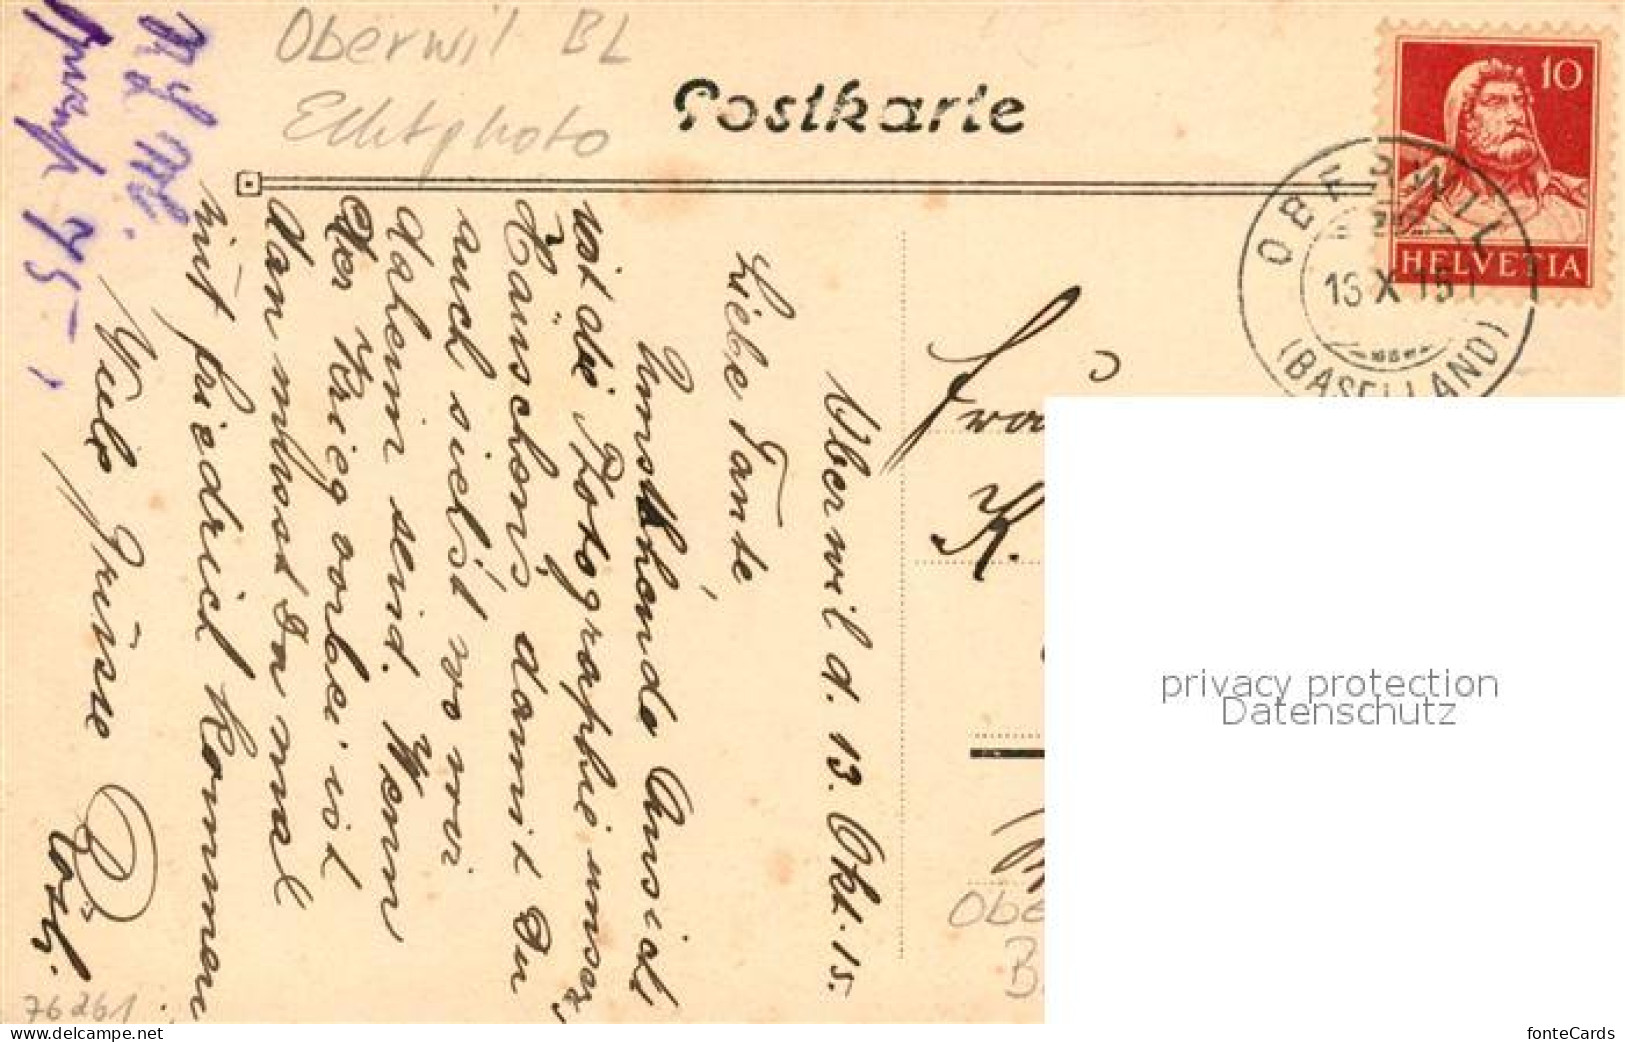 Oberwil BL
Echtphoto
Postkarte
10
HELVETIA
OBERWIL
(BASELLAND)
Oberwil d. 13. Okt. 15.
Liebe Tante,
Umstehende Ansicht
ist die Fotographie unsers
Häuschens, damit Du
auch siehst wo wir
daheim sind. Wenn
der Krieg vorbei ist
dann musst Du mal
mit Friedrich kommen
Viele Grüsse
Rösli.
K.
76261
privacy protection
Datenschutz
www.delcampe.net
fonteCards